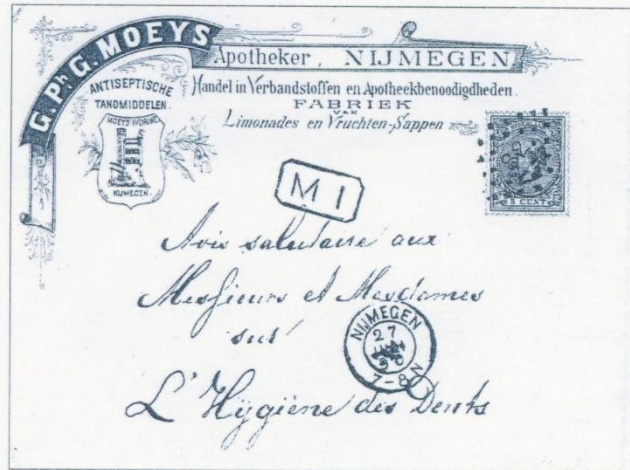 G. Ph. G. MOEYS
Apotheker, NIJMEGEN
Handel in Verbandstoffen en Apotheekbenoodigdheden.
FABRIEK
VAN
Limonades en Vruchten-Sappen
ANTISEPTISCHE
TANDMIDDELEN.
NIJMEGEN.
5 CENT
M I
Avis salutaire aux
Messieurs et Mesdames
sur
L'Hÿgiène des Dents
NIJMEGEN
27
7-8N